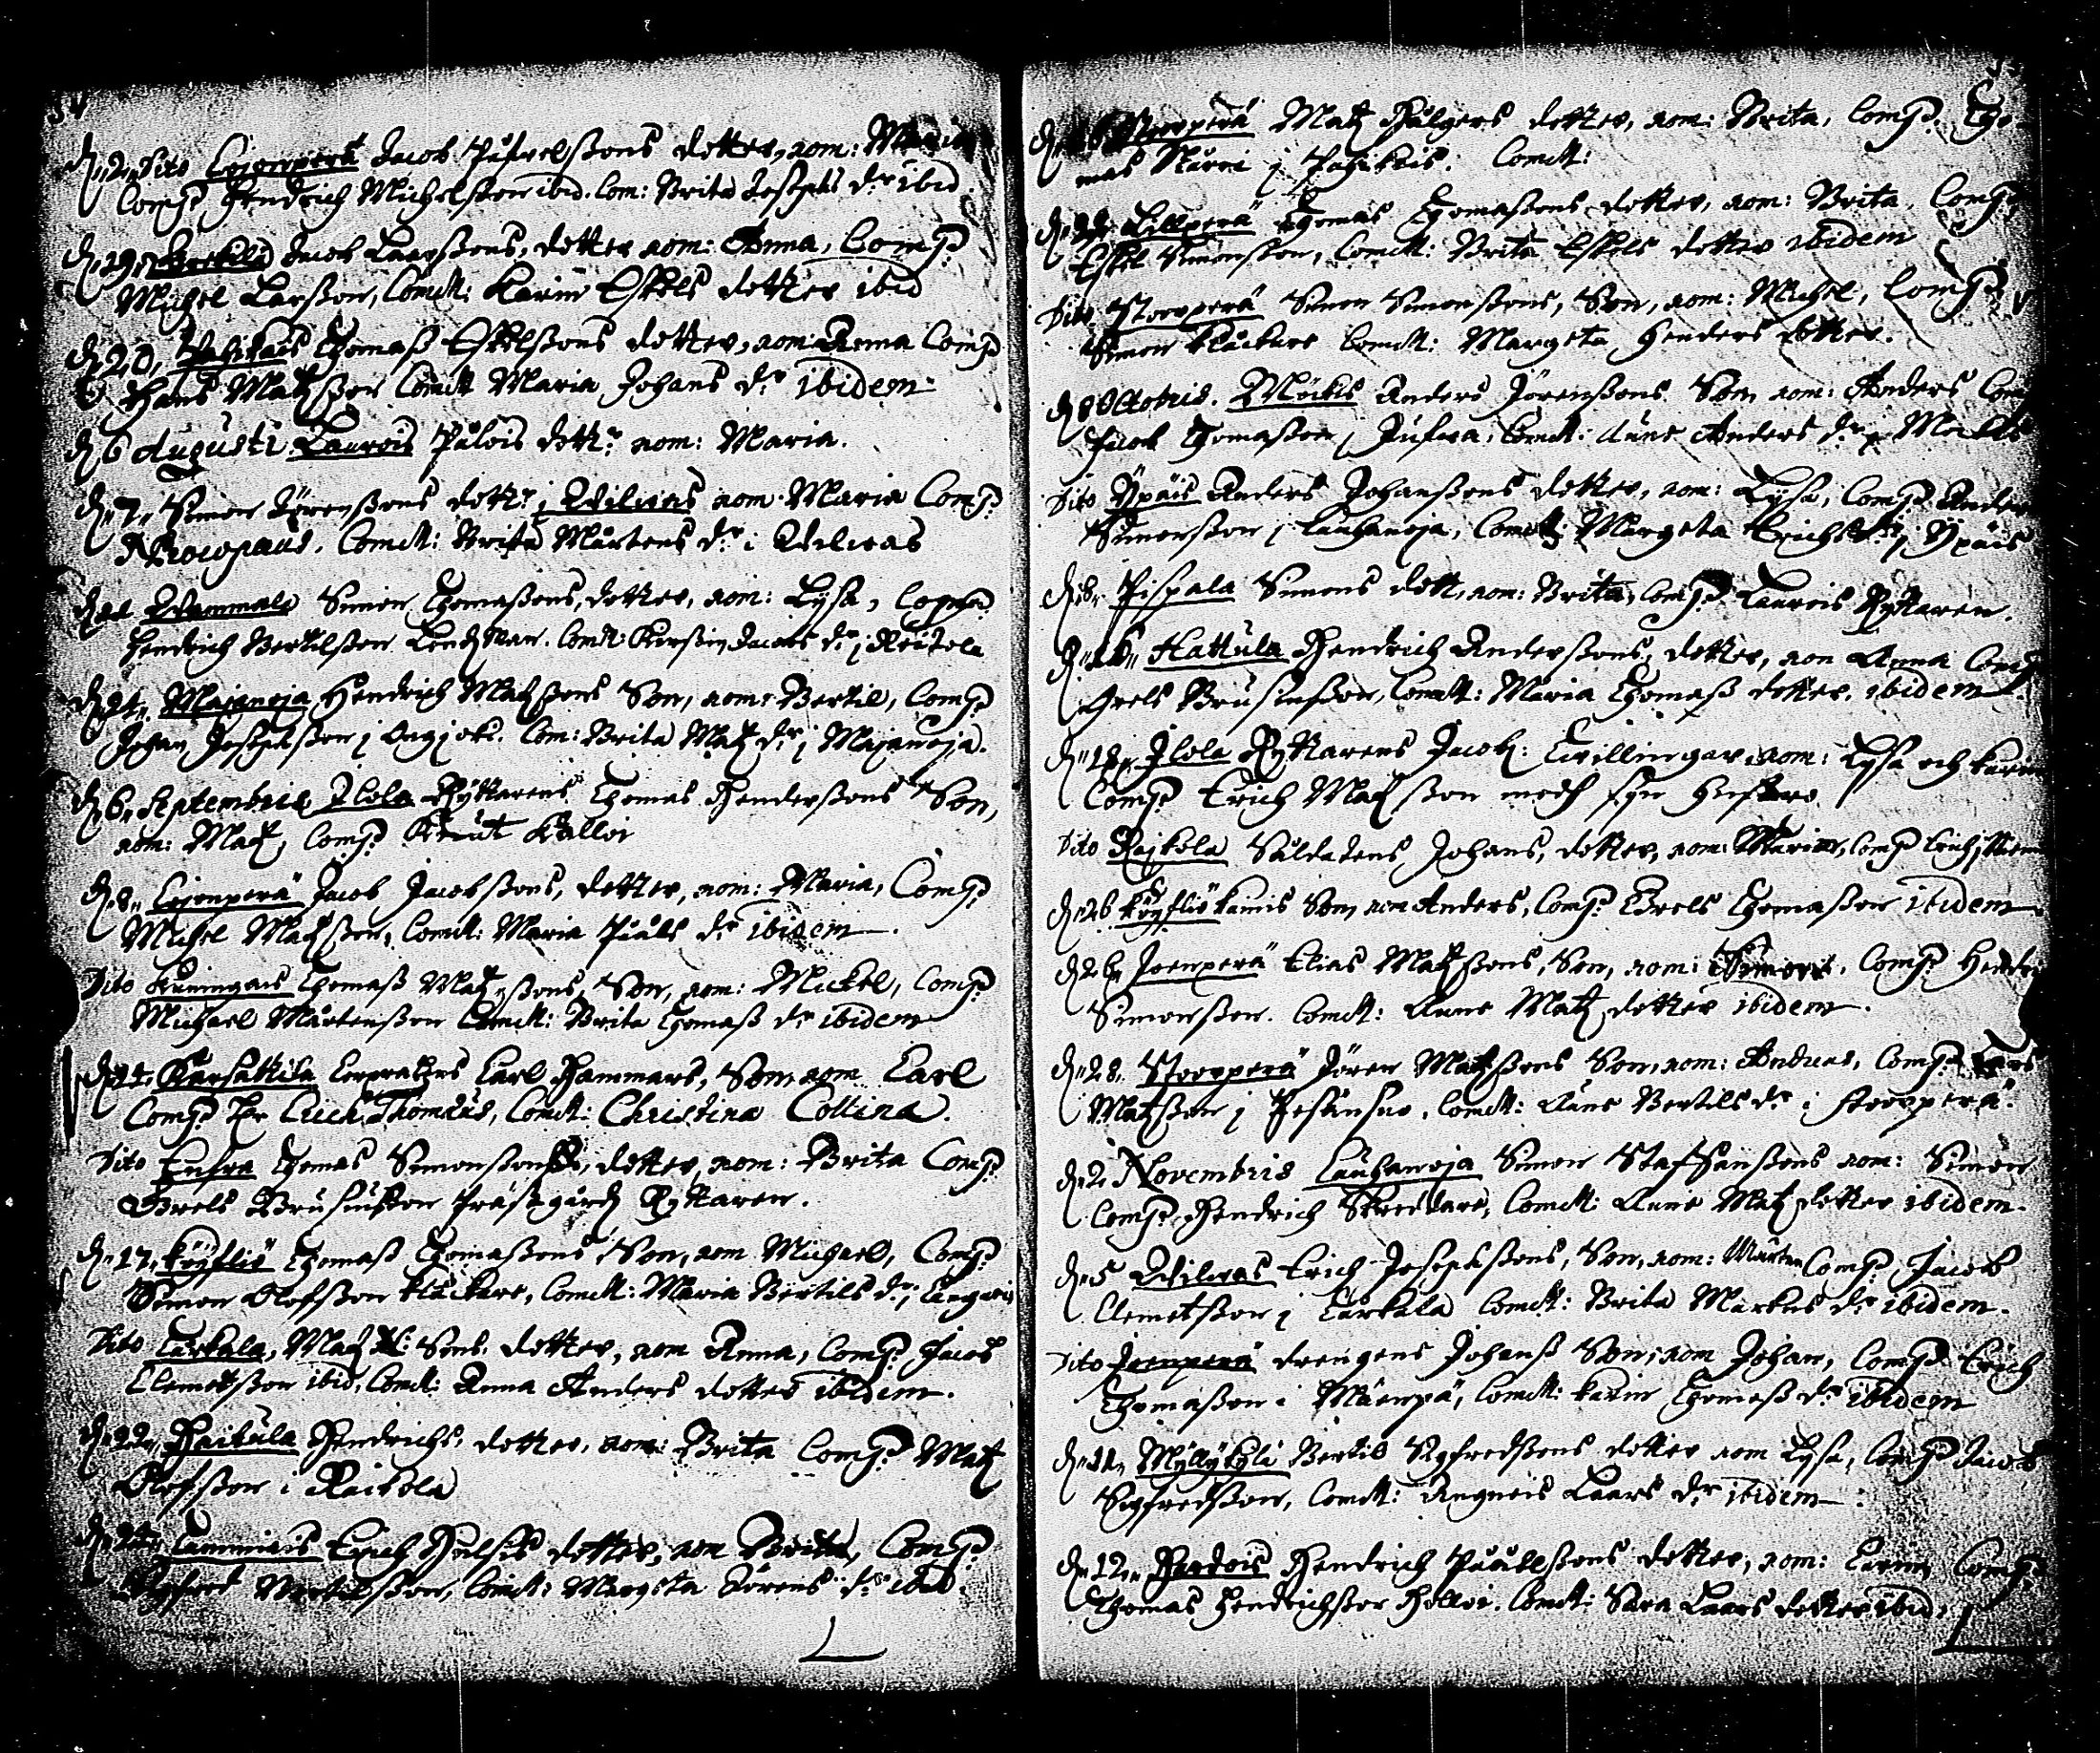 54
d. 2. Dito Loionperä Jacob Påfvelssons dotter, nom: Maria
Comp. Hendrich Michelsson ibid. Com: Brita Josephs dr ibid
d. 19. Jacob Laarssons, dotter nom: Anna, Comp.
Michel Larsson, Comit: Karin Eskels dotter ibid
d. 20, Pahikais Thomass Eskelssons dotter, nom Anna Comp
Hans Matzsson Comit Maria Johans dr ibidem
d. 6 Augusti Laurois Pålois dottr nom: Maria.
d. 7. Simon Jörenssons dottr i Wilwas nom. Maria Comp.
Comit: Brita Mårtens dr i Wilwas
d. 21 Wammala Simon Thomassons, dotter, nom: Lysa, Comp.
Hendrich Bertilsson Lendzman. Comit Kirstin Jacobs dr i Reitola
d. 24. Majanoja Hendrich Matzsons Son, nom: Bertil, Comp.
Johan Josephsson j Ongjoki. Com: Brita Matz dr j Majanoja.
d. 6. Septembris Ilola Ryttarens Thomas Henderssons Son,
nom: Matz, Comp. Knut Kalloi
d. 8. Loionperä Jacob Jacobssons, dotter, nom: Maria, Comp.
Michel Matzsson, Comit: Maria Pååls dr ibidem.
Dito Kuningais Thomass Matzssons, Son, nom: Mickel, Comp
Michael Mårtensson Comit: Brita Thomass dr ibidem
d. Karsattila Corporalens Carl Hammars, Son nom Carl
Comp Hr Erich Thomæus, Comit: Christina Collina.
Dito Tufva Thomas Simonssons, dotter, nom: Brita Comp
Grels Brusiusson Prästgårdz Ryttaren.
d. 17. Köyliö Thomass Thomassons Son, nom Michael, Comp.
Simon Olofsson klåckare, Comit: Maria Bertils dr i
Dito Carkala, Matz Sons. dotter, nom Anna, Comp. Jacob
Clemetsson ibid, Comit: Anna Anders dotter ibidem.
d. 22. Haikula Hendrichs. dotter, nom: Brita Comp Matz
Olofsson i Raikola
d. 24. Lammiais Erich dotter, nom Brita, Comp.
Sigfred Bertilsson, Comit: Margeta Jörens dr ibid.
Storperä Matz Hälgers dotter, nom: Brita, Comp. Tho-
mas i Pahikais. Comit:
d. Lillperä Thomas Thomassons dotter, nom: Brita, Comp
Eskel Simonsson, Comit: Brita Eskels dotter ibidem
Dito, Storperä Simon Simonssons, Son, nom: Michel, Comp
Simon klåckare Comit: Margeta Henders dotter.
d. 8 Octobris. Möckis Anders Jörenssons. Son nom: Anders Comp
Jacob Thomasson i Tufwa, Comit: Anne Anders dr
Dito Ypäis Anders Johanssons dotter, nom: Lysa, Comp Anders
Simonsson i Lauhanoja, Comit: Margeta Erichs dr i Ypäis
d. 8. Pispala Simons dott, nom: Brita, Comp Laurois Ryttaren.
d. 16. Hattula Hendrich Anderssons, dotter, nom Anna Comp
Grels Brusiusson, Comit: Maria Thomass dotter. ibidem
d. 18. Ilola Ryttarens Jacob: Twillingar, nom: Lysa och karin
Comp Erich Matzsson medh sijn hustro
Dito Raikola Såldatens Johans, dotter, nom: Maria, Comp
d. 26 Köyliö kamis Son, nom Anders, Comp. Grels Thomasson ibidem
d. 26 Joenperä Elias Matzsons, Son, nom: Simon, Comp. Hendrich
Simonsson. Comit: Anne Matz dotter ibidem.
d. 28. Storperä Jören Matzsons Son, nom: Andreas, Comp. Lars
Matzson j Pesänsuo, Comit: Anne Bertils dr i storperä.
d. 2 Novembris Lauhanoja Simon Staffanssons nom: Simon
Comp. Hendrich Skreddare, Comit: Anne Matz dotter ibidem.
d. 5 Wilwas Erich Josephssons, Son, nom: Mårten Comp. Jacob
Clemetsson j Carkala Comit: Brita Markus dr ibidem.
Dito Joenperä drengens Johanss Son, nom Johan, Comp. Erich
Thomasson i Mäenpä, Comit: karin Thomass dr ibidem
d. 11. Myllykylä Bertil Sigfredssons dotter nom Lysa, Comp Jacob
Sigfredsson, Comit: Angneis Laars dr ibidem:
d. 12. Hendrich Påålssons dotter, nom: Carin Comp.
Thomas Hendrichsson Holloi. Comit: Sara Laars dotter ibid.